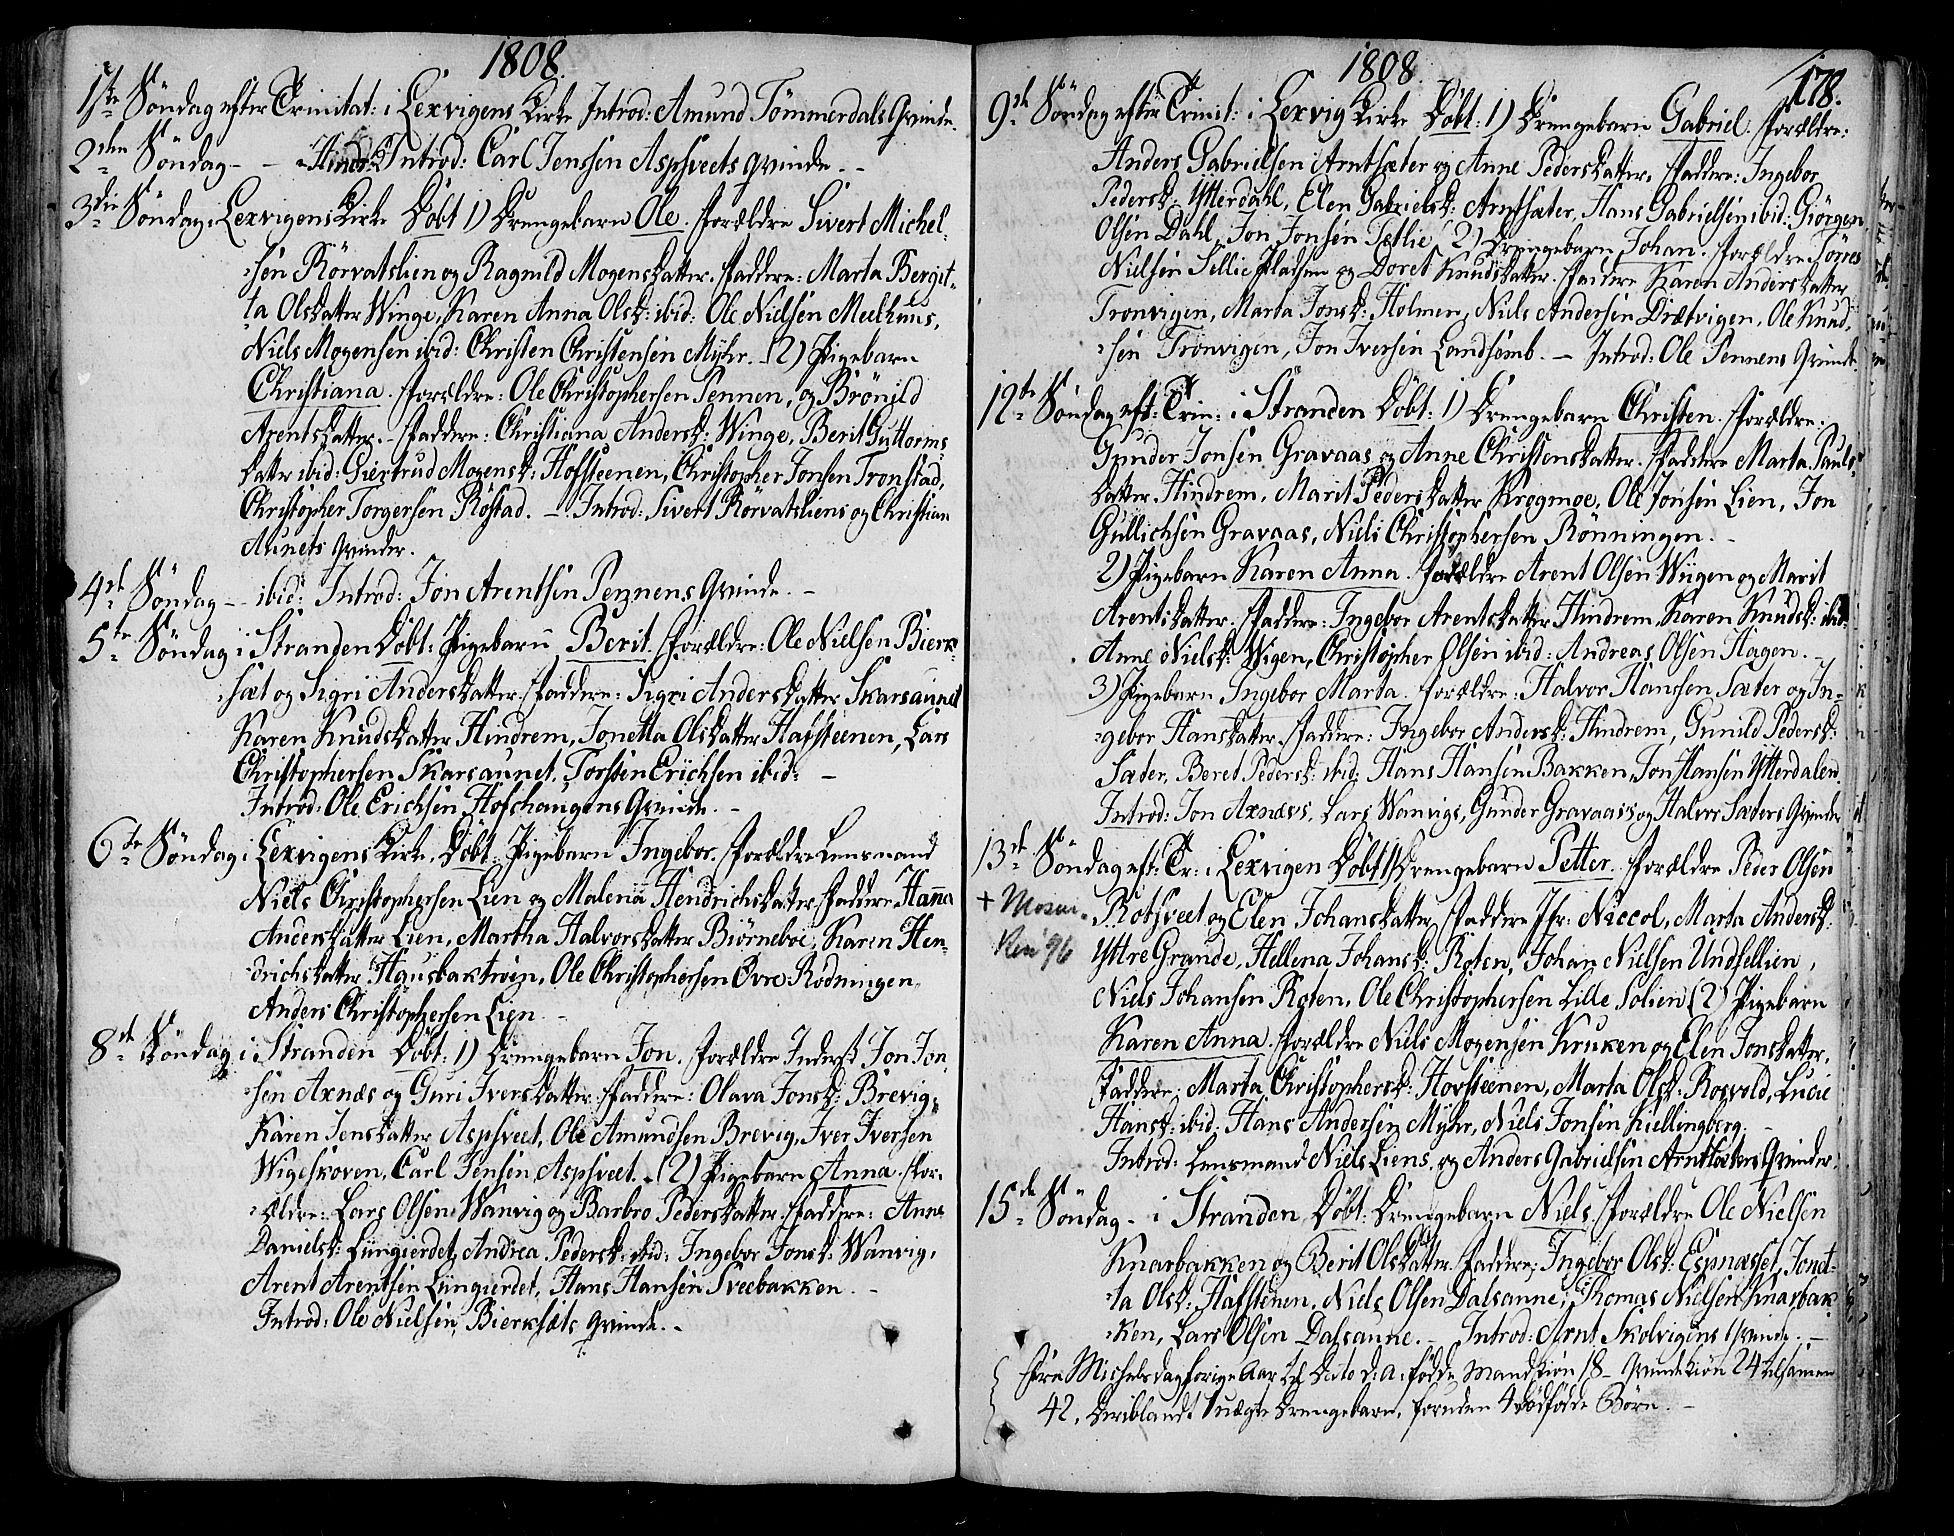 1808.
1ste Søndag efter Trinitat: i Lexvigens Kirke Introd: Amund Tømmerdals Qvinde.
2den Søndag - - Introd: Carl Jenssen Aspsveets Qvinde. -
3die Søndag i Lexvigens Kirke Døbt 1) Drengebarn Ole. Forældre Sivert Michel-
sen Rörvatslien og Ragnild Mogensdatter. Faddere: Marta Bergit-
ta Olsdatter Winge, Karen Anna Olsd: ibid: Ole Nielsen Meelhuus,
Niels Mogensen ibid: Christen Christensen Myhr. 2) Pigebarn
Christiana. Forældre: Ole Christophersen Pennen, og Brönild
Arentsdatter. Faddere: Christiana Andersd: Winge, Berit Guttorms-
datter ibid: Giertrud Mogensd: Hofsteenen, Christopher Jonsen Tronstad,
Christopher Torgersen Röstad. - Introd: Sivert Rörvatsliens og Christian
Aunets Qvinder.
4de Søndag - - ibid: Introd: Jon Arentsen Pennens Qvinde. -
5te Søndag i Stranden Døbt: Pigebarn Berit. Forældre: Ole Nielsen Bierk-
sæt og Sigri Andersdatter. Faddere: Sigri Andersdatter Skarsaunet
Karen Knudsdatter Hindrem, Jonetta Olsdatter Hafsteenen, Lars
Christophersen Skarsaunet, Torsten Erichsen ibid: -
Introd: Ole Erichsen Hofshaugens Qvinde. -
6te Søndag i Lexvigens Kirke, Døbt: Pigebarn Ingebor. Forældre Lensmand
Niels Christophersen Lien og Malena Hendrichsdatter. Faddere Hanna
Andersdatter Lien, Martha Halvorsdatter Biörneboe, Karen Hen-
drichsdatter Haugsbaktrøen, Ole Christophersen Övre Rödningen,
Anders Christophersen Lien. -
8de Søndag i Stranden Døbt: 1) Drengebarn Jon. Forældre Inderst Jon Jon-
sen Axnæs og Guri Iversdatter. Faddere: Olava Jonsd: Brevig,
Karen Jensdatter Aspsveet, Ole Amundsen Brevig, Iver Iversen
Wigeskoven, Carl Jensen Aspsveet. - 2) Pigebarn Anna. For-
ældre: Lars Olsen Wanvig og Barbro Pedersdatter. Faddere: Anne
Danielsd: Lüngierdet, Andrea Pedersd: ibid: Ingebor Jonsd: Wanvig,
Arent Arentsen Lüngierdet, Hans Hansen Sveebakken. -
Introd: Ole Nielsen Bierksæts Qvinde. -
1808.
178.
9de Søndag efter Trinit: i Lexvig Kirke Døbt: 1) Drengebarn Gabriel. Forældre:
Anders Gabrielsen Arntsæter og Anne Pedersdatter. Faddere: Ingebor
Pedersd: Ytterdahl, Elen Gabrielsd: Arntsæter, Hans Gabrielsen ibid: Giörgen
Olsen Dahl, Jon Jonsen 2) Drengebarn Johan. Forældre: Törres
Nielsen Sellie Pladsen og Doret Knudsdatter. Faddere Karen Andersdatter
Tronvigen, Marta Jonsd: Holmen, Niels Andersen Diætvigen, Ole Knud-
sen Tronvigen, Jon Iversen Landsomb. - Introd: Ole Pennens Qvinde
12te Søndag eft: Trin: i Stranden Døbt: 1) Drengebarn Christen. Forældre:
Gunder Jonsen Gravaas og Anne Christensdatter. Faddere Marta Pauls-
datter Hindrem, Marit Pedersdatter Krogmoe, Ole Jonsen Lien, Jon
Gullichsen Gravaas, Niels Christophersen Rönningen. -
2) Pigebarn Karen Anna. Forældre Arent Olsen Wiigen og Marit
Arentsdatter. Faddere: Ingebor Arentsdatter Hindrem, Karen Knudsd: ibid:
Anne Nielsd: Wigen, Christopher Olsen ibid: Andreas Olsen Hagen. -
3) Pigebarn Ingebor Marta. Forældre: Halvor Hanssen Sæter og In-
gebor Hansdatter. Faddere: Ingebor Andersd: Hindrem, Gunild Pedersd:
Sæter, Beret Pedersd: ibid: Hans Hansen Bakken, Jon Hansen Ytterdalen.
Introd: Jon Axnæs, Lars Wanvigs, Gunder Gravaas og Halvor Sæters Qvinder
13de Søndag eft: Tr: i Lexvigen Døbt 1) Drengebarn Petter. Forældre Peder Olsen
+ Mosvi-
ken 96
Rotsveet og Elen Johansdatter, Faddere Jfr: Niccol, Marta Andersd:
Yttre Grande, Hellena Johansd: Roten, Johan Nielsen Undsellien,
Niels Johansen Roten, Ole Christophersen Lille Solien 2) Pigebarn
Karen Anna. Forældre Niels Mogensen Kruken og Elen Jonsdatter.
Faddere: Marta Christophersd: Hovsteenen, Marta Olsd: Rosvold, Lucie
Hansd: ibid: Hans Andersen Myhr, Niels Jonsen Kiellingberg. -
Introd: Lensmand Niels Liens, og Anders Gabrielsen Arntsæters Qvinder.
15de Søndag - i Stranden Døbt: Drengebarn Niels. Forældre Ole Nielsen
Knarbakken og Berit Olsdatter. Faddere: Ingebor Olsd: Espnæsset, Jonet-
ta Olsd: Hafstenen, Niels Olsen Dalsaune, Thomas Nielsen Knarbak-
ken, Lars Olsen Dalsaune. - Introd: Arnt Skolvigens Qvinde. -
Fra Michelsdag forige Aar til Dato d: a: fødde Mandkiön 18 - Qvindekiön 24 tilsamen
42, deriblandt 1 uægte Drengebarn, foruden 4 dödfödde Börn. -